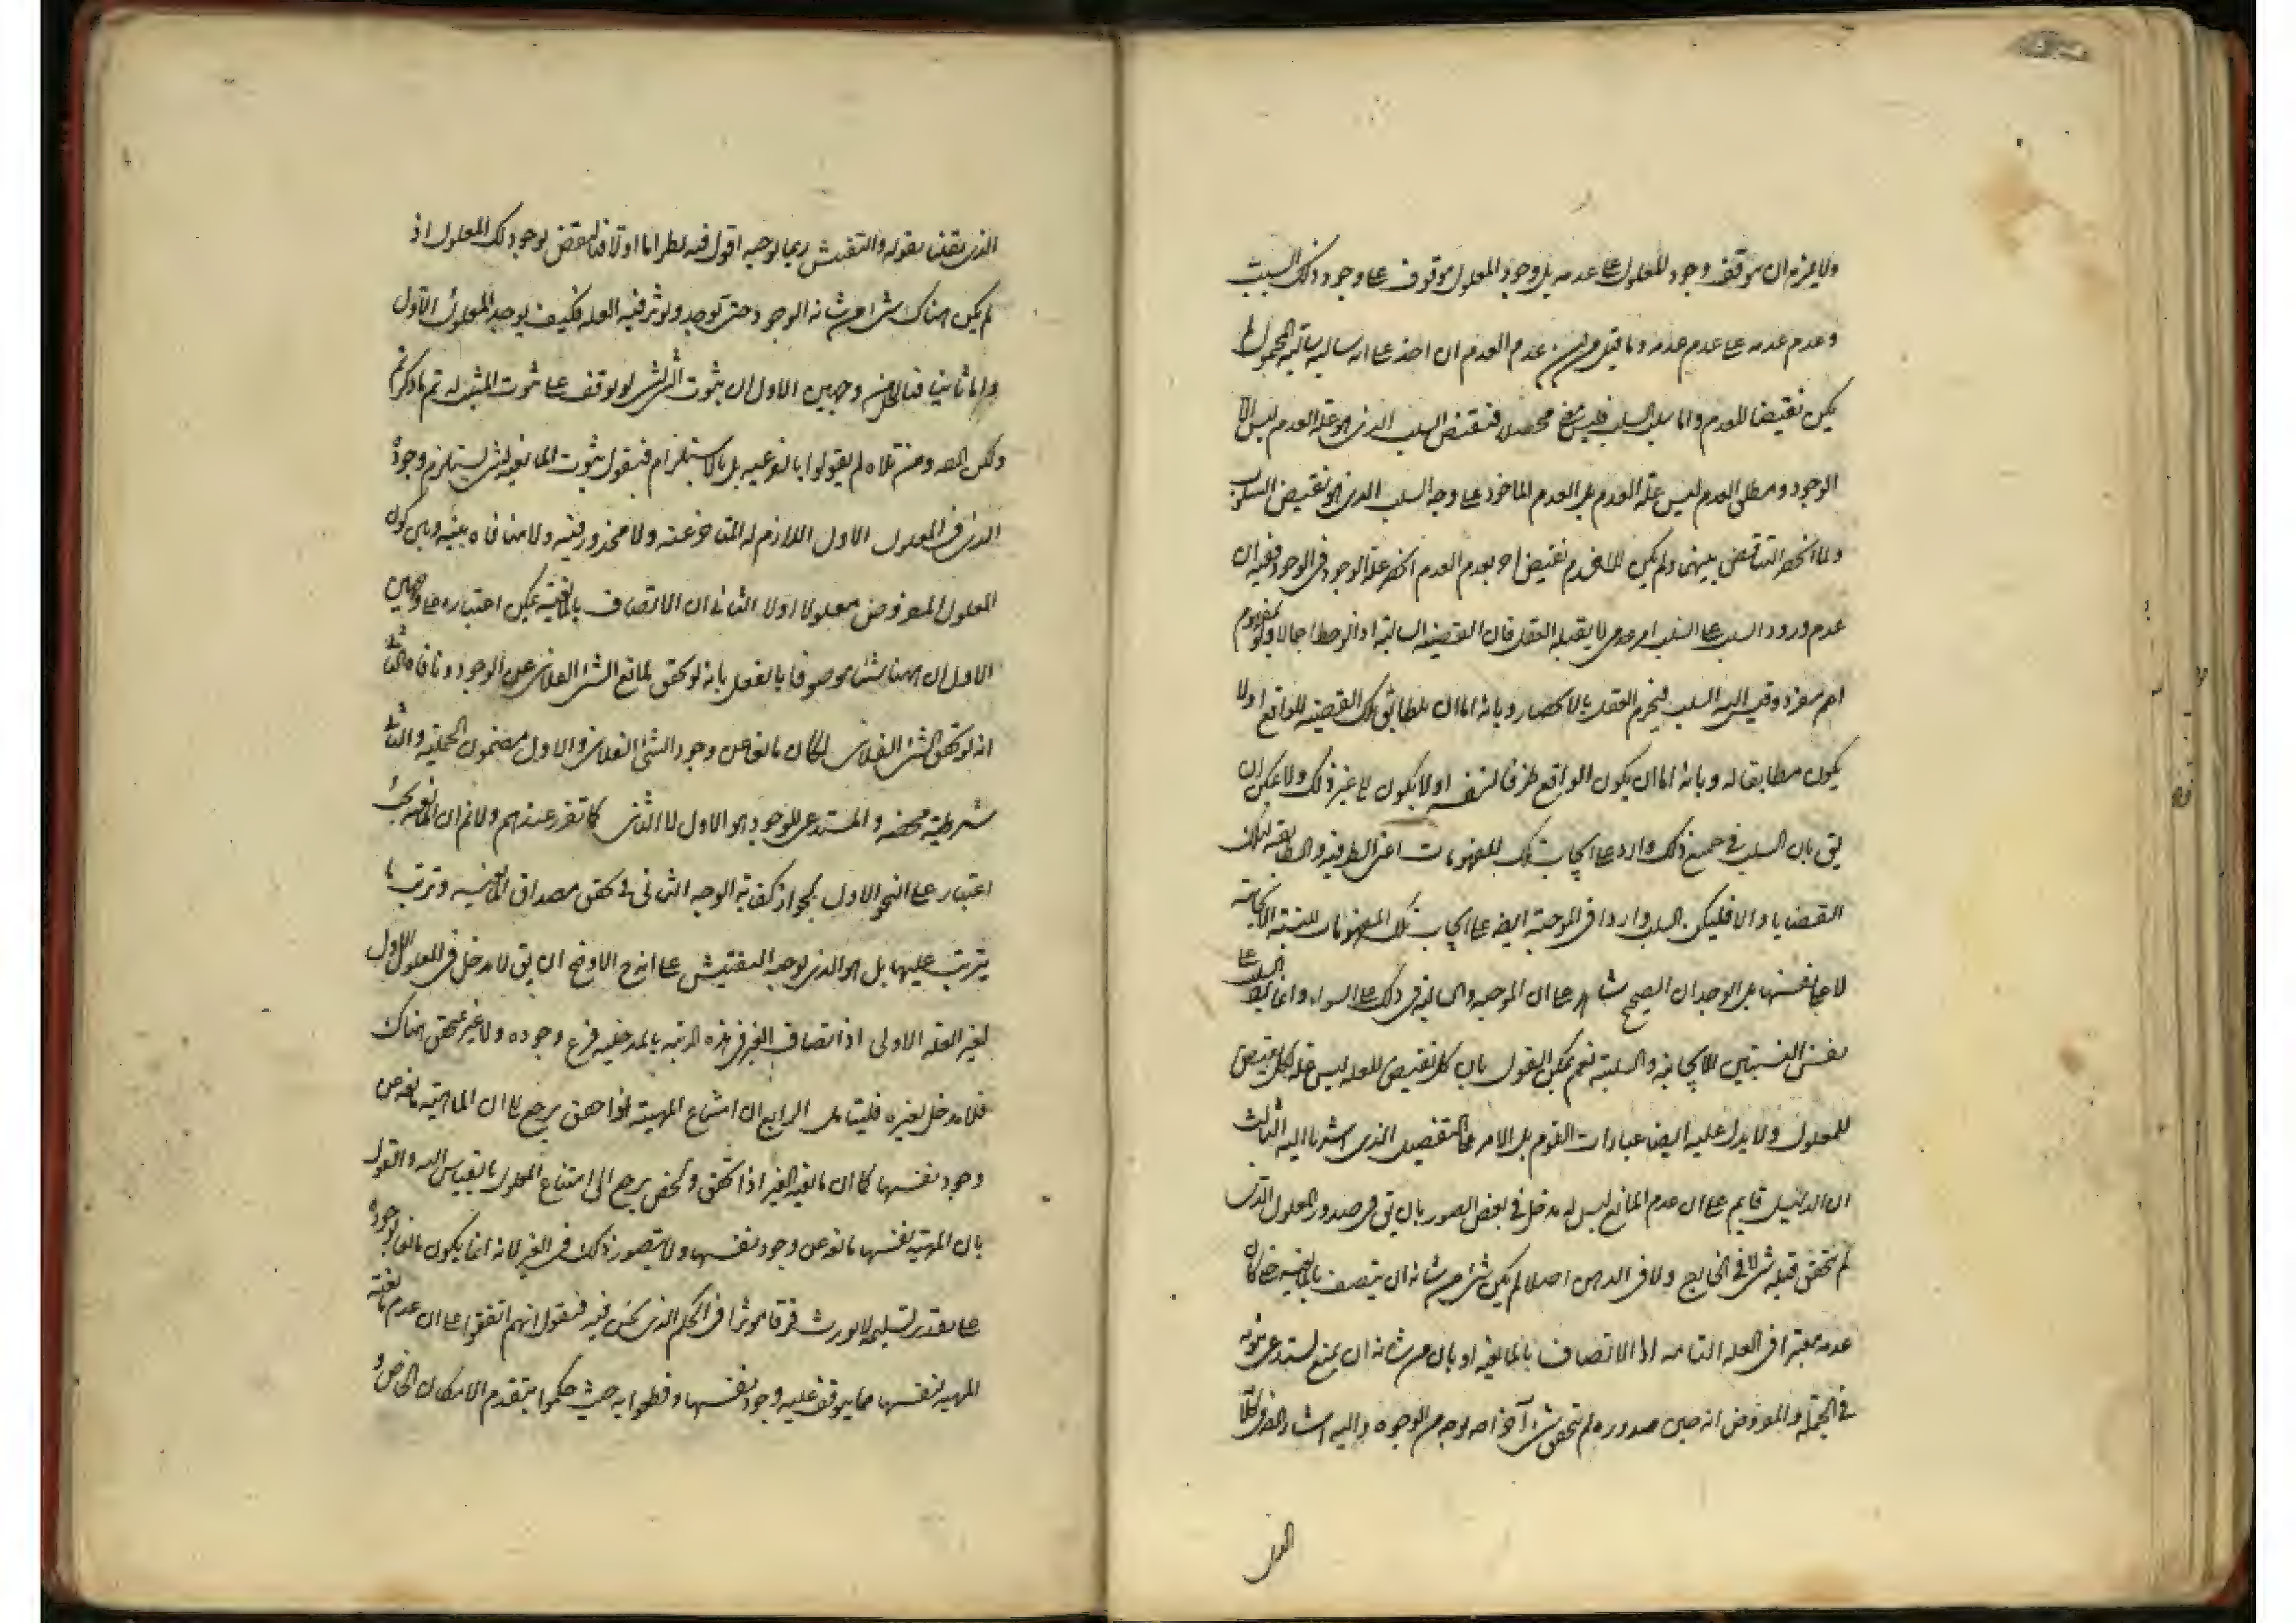 ولا يلزم ان يتوقف وجود المعلول على عدمه بل وجود المعلول موقوف على وجود ذلك السبب
وعدم عدمه على عدم عدمه وما قيل من ان عدم العدم ان اخذ على انه سالبة سالبة المحمول لم
يكن نقيضا للعدم واما سلب السلب فليس محصلا فنقيض السلب الذي هو علة العدم ليس الا
الوجود ومطلق العدم ليس علة العدم بل العدم الماخوذ على وجه السلب الذي هو نقيض
ولما انحصر التناقض بينهما ولم يكن للعدم نقيض اخر بعدم العدم انحصر علة الوجود في الوجود ففيه ان
عدم ورود السلب على السلب امر لا يقبله العقل فان القضية السالبة اذا لوحظ اجمالا
امر مفرد وقيس اليه السلب فيجزم العقل بالانحصار وبانه اما ان يطابق تلك القضية للواقع او لا
يكون مطابقا له وبانه اما ان يكون الواقع ظرفا لنفسه او لا يكون الى غير ذلك ولا يمكن ان
يق بان السلب في جميع ذلك وارد على ايجاب تلك المفهومات اعني الظرفية والمطابقة لتلك
القضايا والا فليكن السلب واردا في الموجبة ايضا على ايجاب تلك المفهومات للنسبة الايجابية
لا على نفسها بل الوجدان الصحيح شاهد على ان الموجبة والسالبة في ذلك على السواء وانما
نفس النسبتين الايجابية والسلبية نعم يمكن القول بان كل نقيض للعلة ليس علة لكل نقيض
للمعلول ولا يدل عليه ايضا عبارات القوم بل الامر على التفصيل الذي اشرنا اليه الثالث
ان الدليل قايم على ان عدم المانع ليس له مدخل في بعض الصور بان يق في صدور المعلول الذي
لم يتحقق قبله شئ لا في الخارج ولا في الذهن اصلا لم يكن شئ من شانه ان يتصف بالمانعية حتى كان
عدمه معتبرا في العلة التامة اذ الاتصاف بالمانعية او بان من شانه ان يمنع يستدعي ثبوته
في الجملة والمفروض انه حين صدوره لم يتحقق شئ آخر اصلا بوجه من الوجوه واليه اشار
القول
الذي نقلنا بقوله والتفتيش ربما يوجبه اقول فيه نظر اما اولا فبالنقض بوجود تلك المعلول اذ
لم يكن هناك شئ من شانه الوجود حتى توجد وتؤثر فيه العلة فكيف يوجد المعلول الاول
واما ثانيا فبالحل من وجهين الاول ان ثبوت الشئ للشئ لو توقف على ثبوت المثبت له تم ما ذكرتم
ولكن المص ومن تلاه لم يقولوا بالفرعية بل بالاستلزام فنقول ثبوت المانعية لشئ يستلزم وجود
الذي في المعلول الاول اللازم له المتاخر عنه ولا محذور فيه ولا منافاة بينه وبين كون
المعلول المفروض معلولا اولا الثاني ان الاتصاف بالمانعية يمكن اعتباره على وجهين
الاول ان ههنا شيئا موصوفا بالفعل بانه لو تحقق لمانع الشئ الفلاني عن الوجود ونافاه الثاني
انه لو تحقق الشئ الفلاني لكان مانعا عن وجود الشئ الفلاني والاول مضمون الحملية والثاني
شرطية محضة والمستدعي للوجود هو الاول لا الثاني كما تقرر عندهم ولا نم ان المانعية
اعتبار على النحو الاول لجواز كفاية الوجه الثاني في تحقق مصداق المانعية وترتب ما
يترتب عليها بل هو الذي يوجبه التفتيش على انه ح الاوضح ان يق لا مدخل في المعلول الاول
لغير العلة الاولى اذ اتصاف الغير في هذه المرتبة بالمدخلية فرع وجوده ولا غير متحقق هناك
فلا مدخل لغيره فليتامل الرابع ان امتناع المهية لذاتها يرجع الى ان الماهية
وجود نفسها كما ان مانعية الغير اذا تحقق يرجع الى امتناع المعلول بالقياس اليه والقول
بان المهية نفسها مانعة عن وجود نفسها ولا يتصور ذلك في الغير لانه انما يكون مانعا لوجوده
على تقدير تسليمه لا يورث فرقا مؤثرا في الحكم الذي نحن فيه فنقول انهم اتفقوا على ان عدم مانعية
المهية لنفسها مما يتوقف عليه وجود نفسها وقطعوا به حيث حكموا بتقدم الامكان الخاص